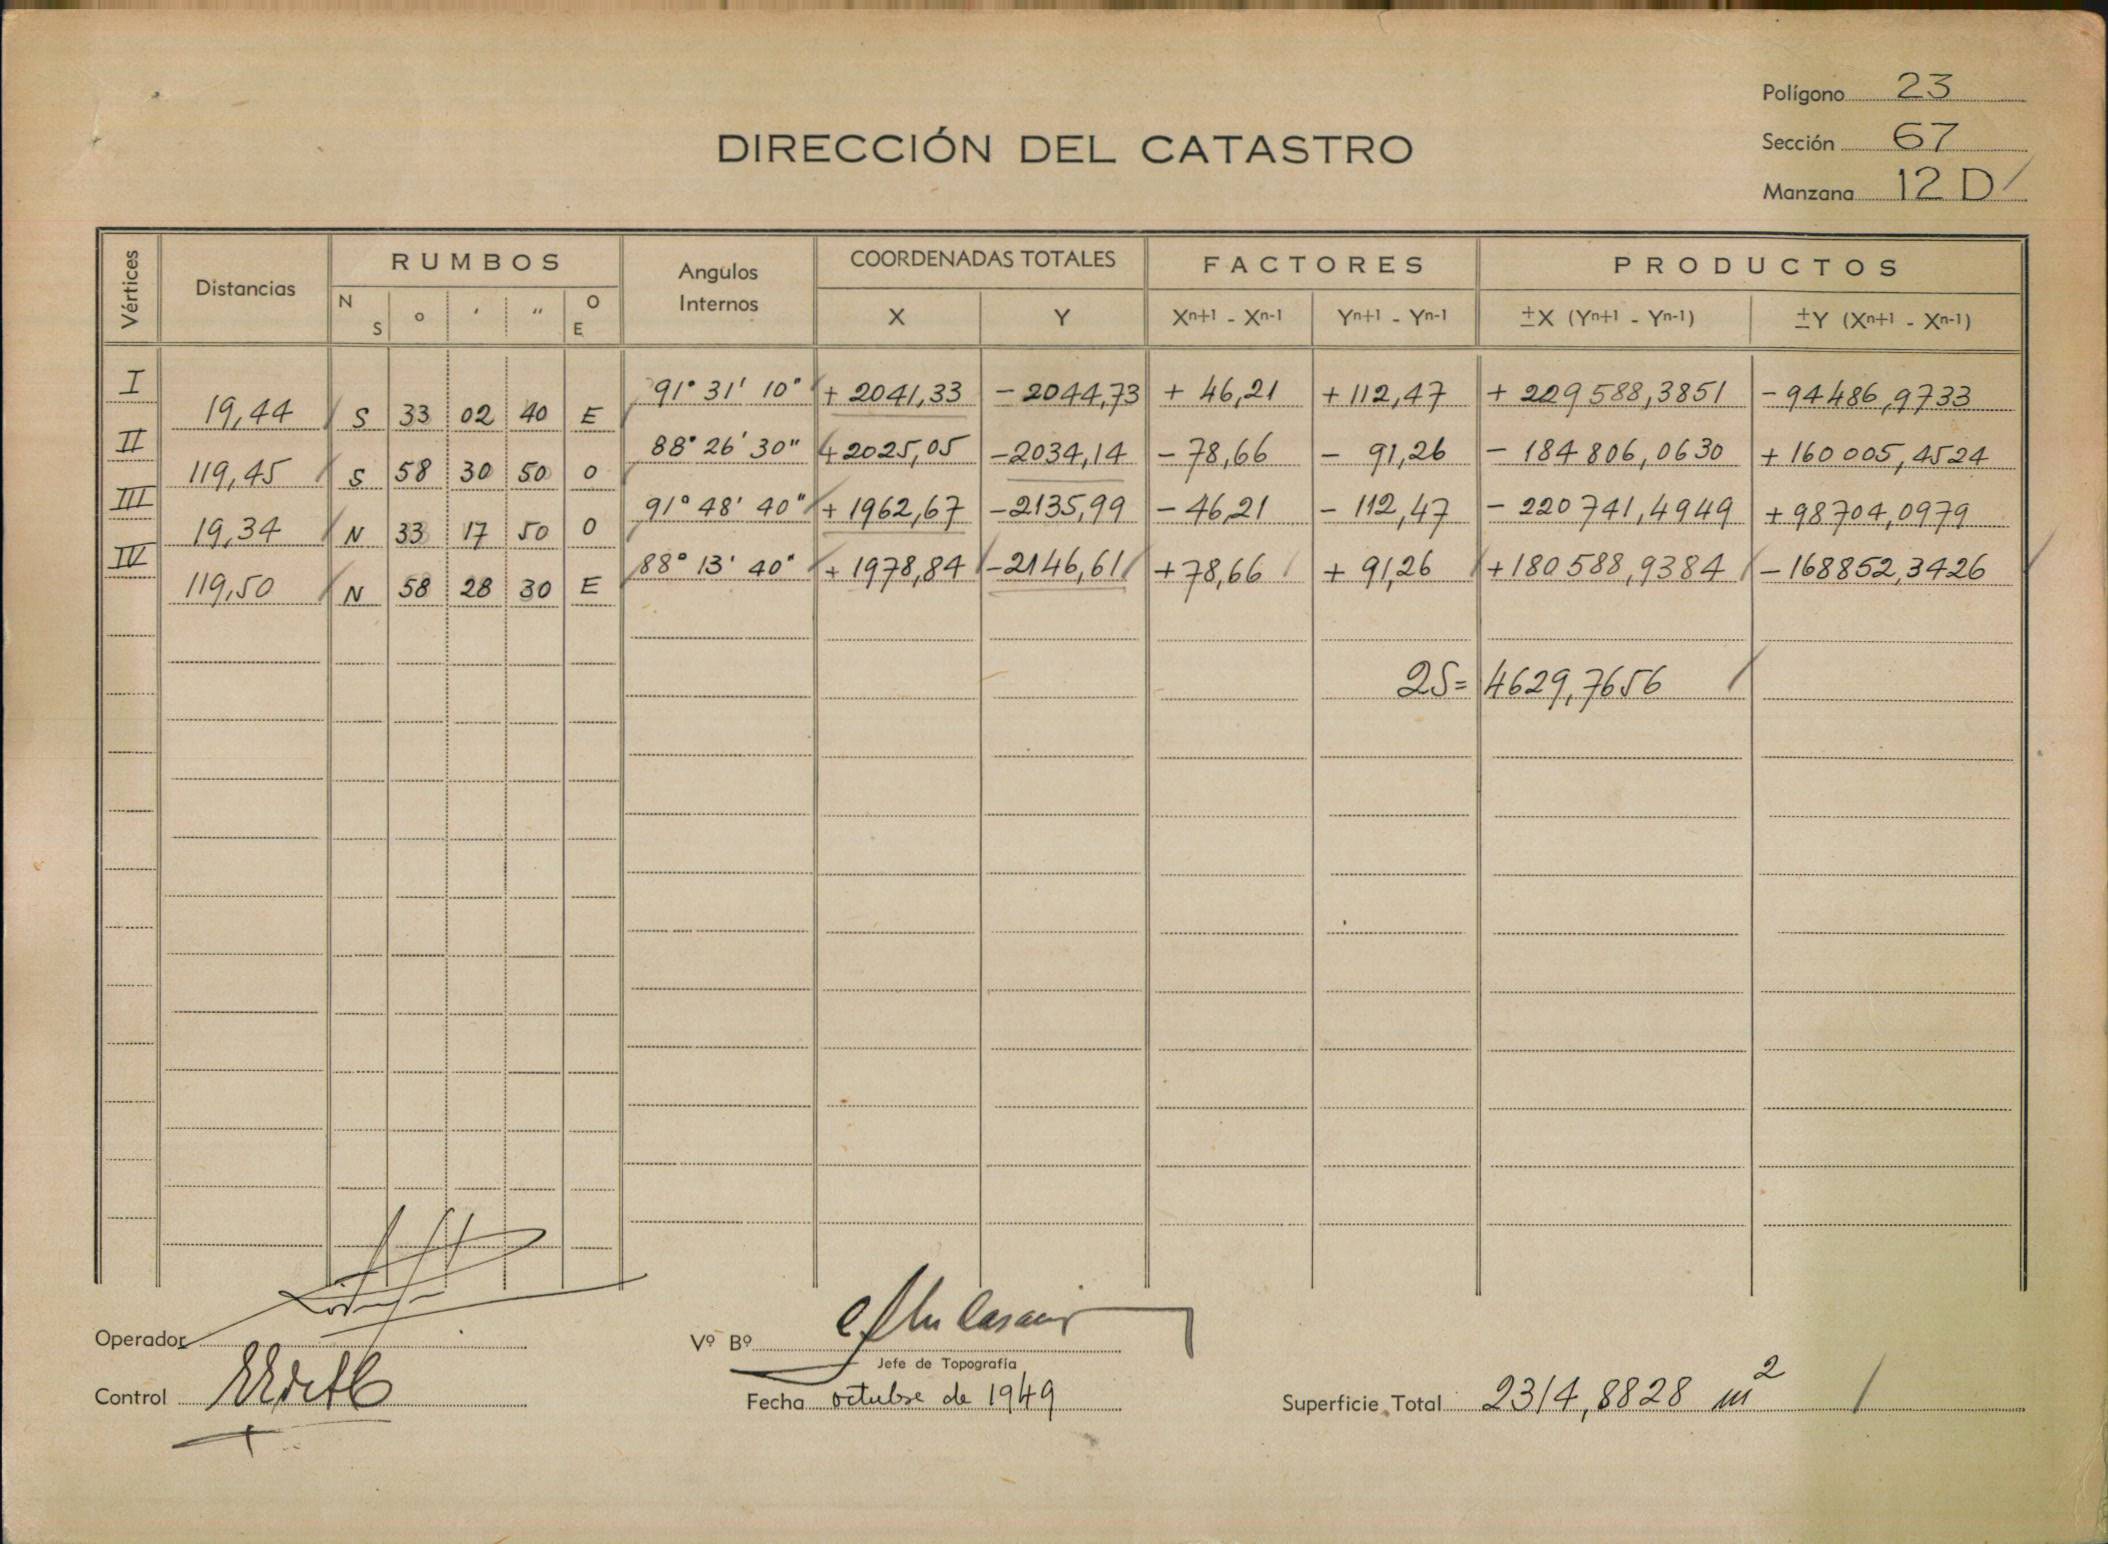 Polígono 23
Sección 67
Manzana 12 D
DIRECCIÓN DEL CATASTRO
Vértices Distancias RUMBOS Angulos Internos COORDENADAS TOTALES FACTORES PRODUCTOS
N S ° ' " O E X Y Xn+1 - Xn-1 Yn+1 - Yn-1 ±X (Yn+1 - Yn-1) ±Y (Xn+1 - Xn-1)
I 91° 31' 10" + 2041,33 - 2044,73 + 46,21 + 112,47 + 229588,3851 - 94486,9733
19,44 S 33 02 40 E
II 88° 26' 30" + 2025,05 - 2034,14 - 78,66 - 91,26 - 184806,0630 + 160005,4524
119,45 S 58 30 50 O
III 91° 48' 40" + 1962,67 - 2135,99 - 46,21 - 112,47 - 220741,4949 + 98704,0979
19,34 N 33 17 50 O
IV 88° 13' 40" + 1978,84 - 2146,61 + 78,66 + 91,26 + 180588,9384 - 168852,3426
119,50 N 58 28 30 E
2S= 4629,7656
Operador
Vº Bº
Jefe de Topografía
Control
Fecha octubre de 1949
Superficie Total 2314,8828 m2